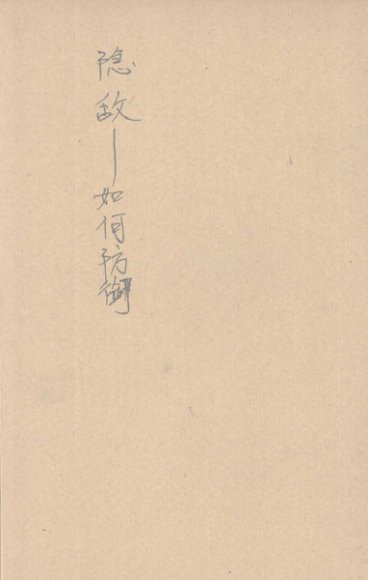 隐敌—如何防御